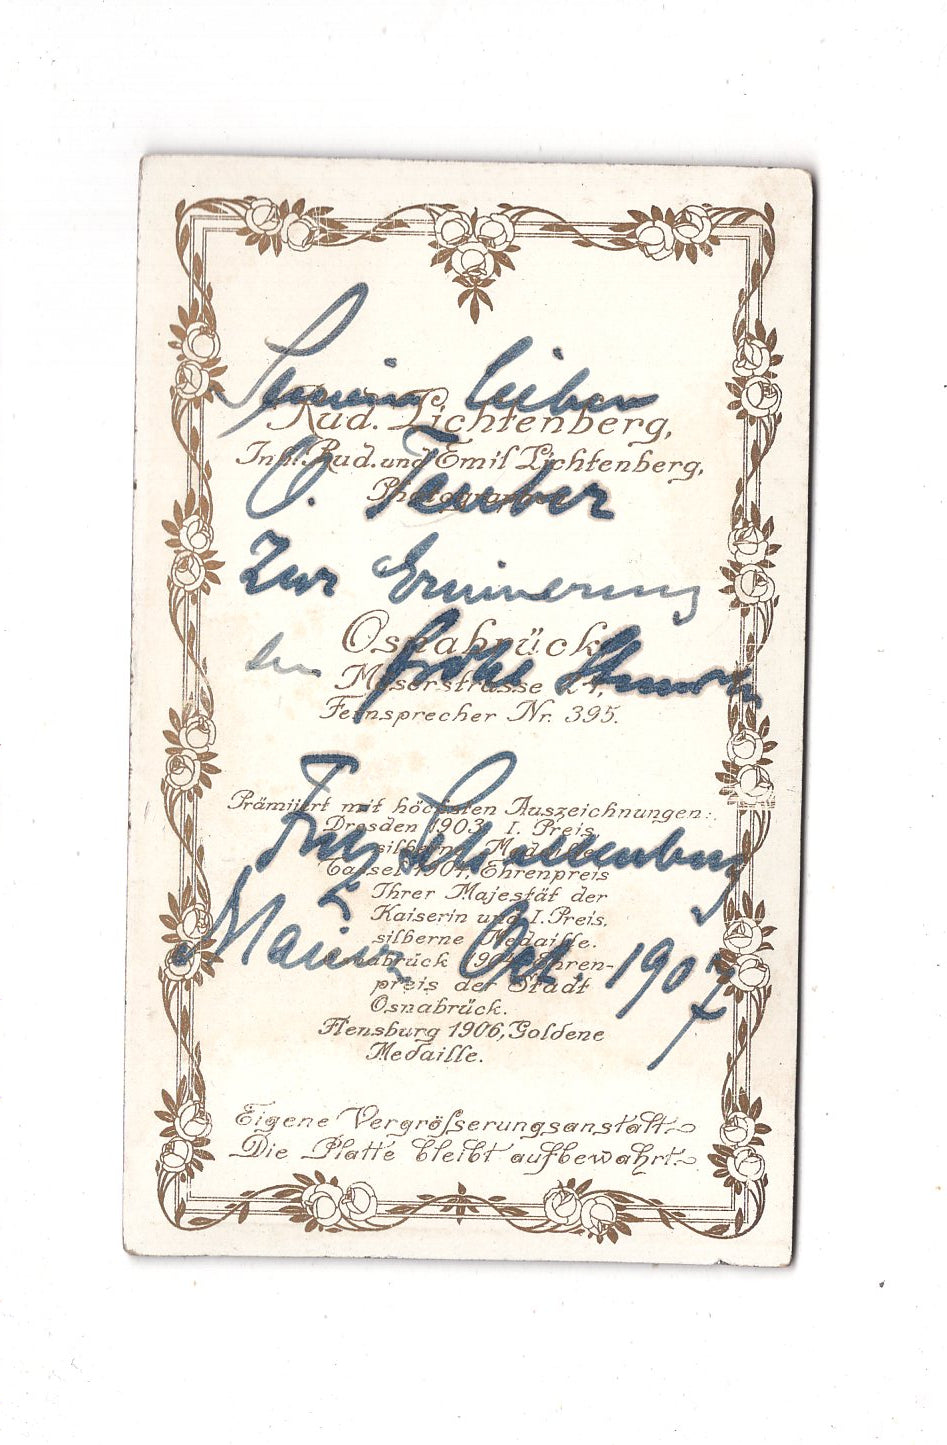 Seinem lieben
Rud. Lichtenberg,
Inh. Rud. und Emil Lichtenberg,
O. Teuber
Photograph
Zur Erinnerung
Osnabrück
an frohe Stunden
Möserstrasse 21,
Fernsprecher Nr. 395.
Prämiiert mit höchsten Auszeichnungen:
Dresden 1903, I. Preis,
silberne Medaille
Fritz
Cassel 1904, Ehrenpreis
Ihrer Majestät der
Kaiserin und I. Preis,
silberne Medaille.
Mainz Oct. 1907
Osnabrück Ehren-
preis der Stadt
Osnabrück.
Flensburg 1906, Goldene
Medaille.
Eigene Vergrößerungsanstalt.
Die Platte bleibt aufbewahrt.